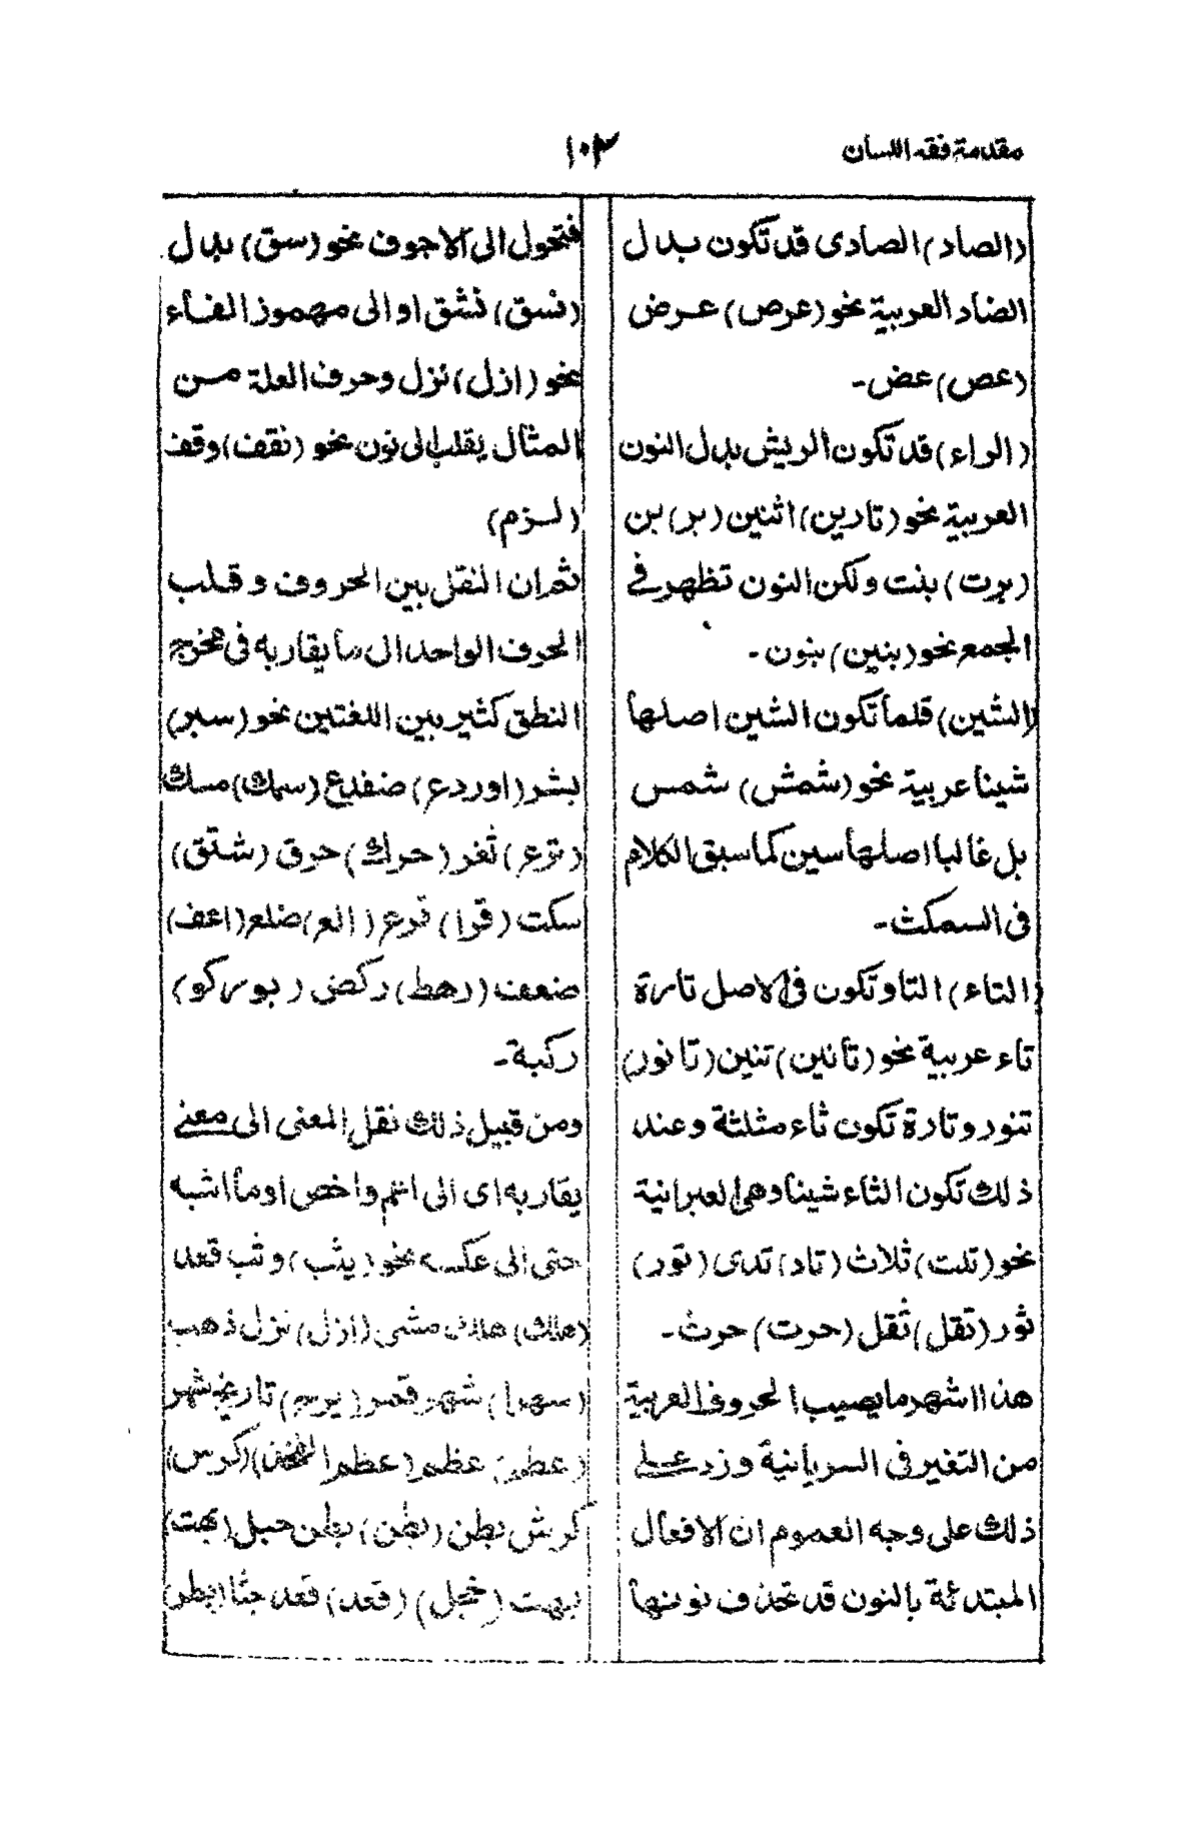 مقدمة فقه اللسان
١٠٢
(الصاد) الصادى قد تكون بدل
الضاد العربية نحو (عرص) عرض
(عص) عض-
(الراء) قد تكون الريش بدل النون
العربية نحو (تارين) اثنين (بر) بن
(برت) بنت ولكن النون تظهر فى
الجمع نحو (بنين) بنون-
(الشين) قلما تكون الشين اصلها
شينا عربية نحو (شمش) شمس
بل غالبا اصلها سين كما سبق الكلام
فى السمكث-
(التاء) التاو تكون فى الاصل تارة
تاء عربية نحو (تانين) تنين (تانور)
تنور وتارة تكون ثاء مثلثة وعند
ذلك تكون الثاء شينا دهى العبرانية
نحو (تلت) ثلاث (تاد) تدى (تور)
ثور (تقل) ثقل (حرت) حرث-
هذا اشهر ما يصيب الحروف العربية
من التغير فى السريانية وزد على
ذلك على وجه العموم ان الافعال
المبتدئة بالنون قد تحذف نونها
فتحول الى الاجوف نحو (سق) بدل
(نسق) نشق او الى مهموز الفاء
نحو (ازل) نزل وحرف العلة من
المثال يقلب الى نون نحو (نقف) وقف
(لزم)
ثم ان النقل بين الحروف وقلب
الحرف الواحد ال ما يقاربه فى مخرج
النطق كثير بين اللغتين نحو (سبر)
بشر (اوردع) ضفدع (سمك) مسك
(ترع) ثغر (حرك) حرق (شتق)
سكت (قرا) قرع (الع) ضلع (اعف)
ضعف (رهط) ركض (بوركو)
ركبة-
ومن قبيل ذلك نقل المعنى الى معنے
يقاربه اى الى اعم واخص او ما اشبه
حتى الى عكسه نحو (يثب) وثب قعد
(هلك) هلك مشى (ازل) نزل ذهب
(سهرا) شهر قمر (يرح) تاريخ شهر
(عطم) عظم (عظم الفخذ) (كرس)
كرش بطن (بطن) بطن حبل (بهت)
بهت (خجل) (قعد) قعد جثا